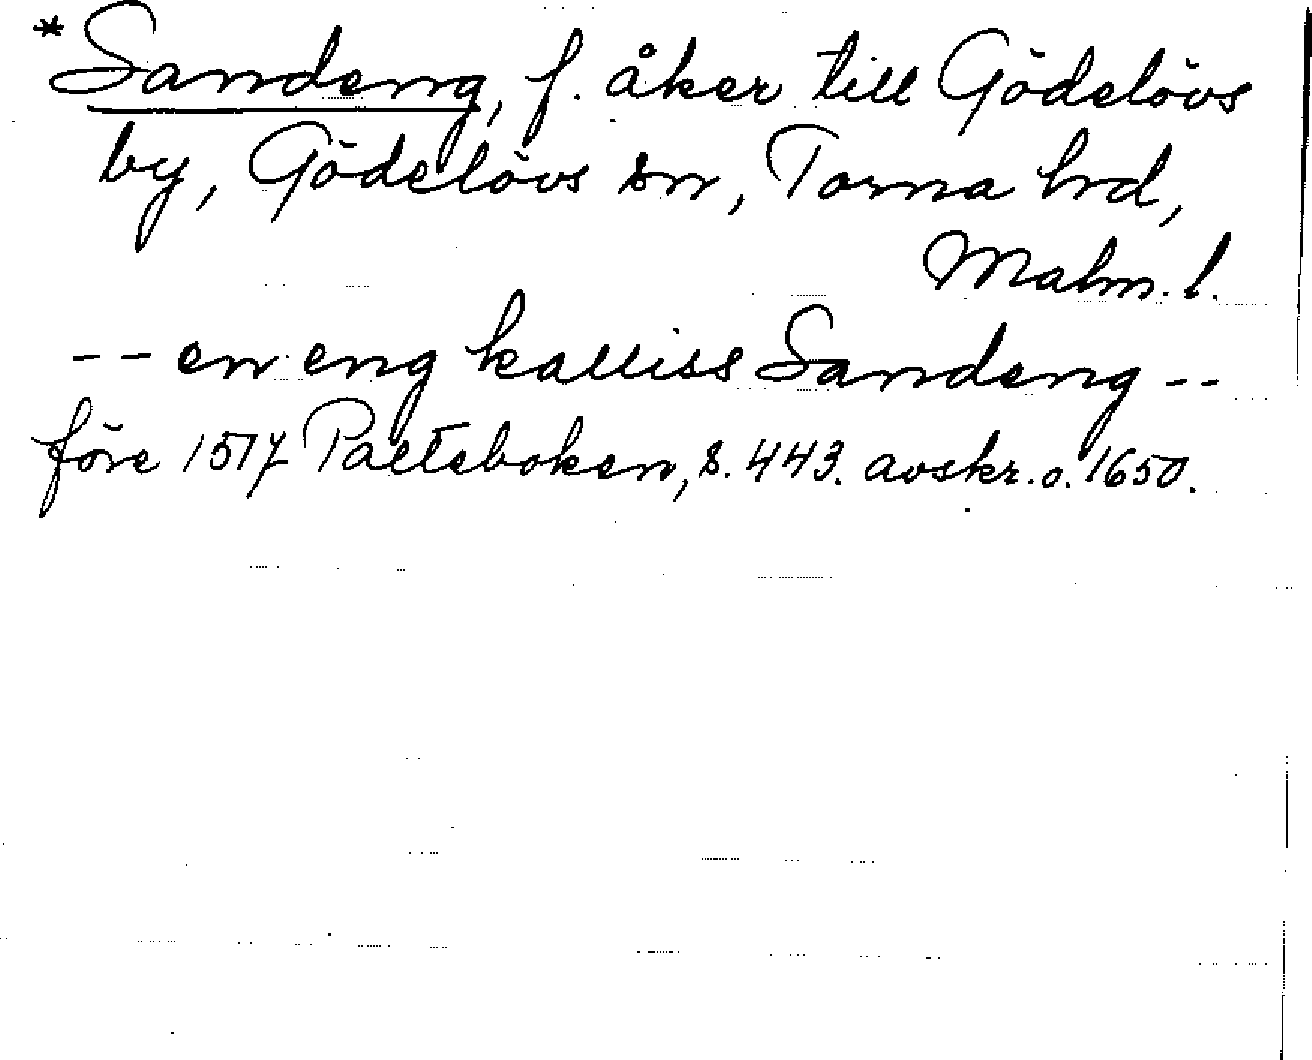 *Sandeng, f. åker till Gödelövs
by, Gödelövs sn, Torna hrd,
Malm. l.
-- en eng kalliss Sandeng --
före 1517 Palteboken, s. 443. avskr. o. 1650.